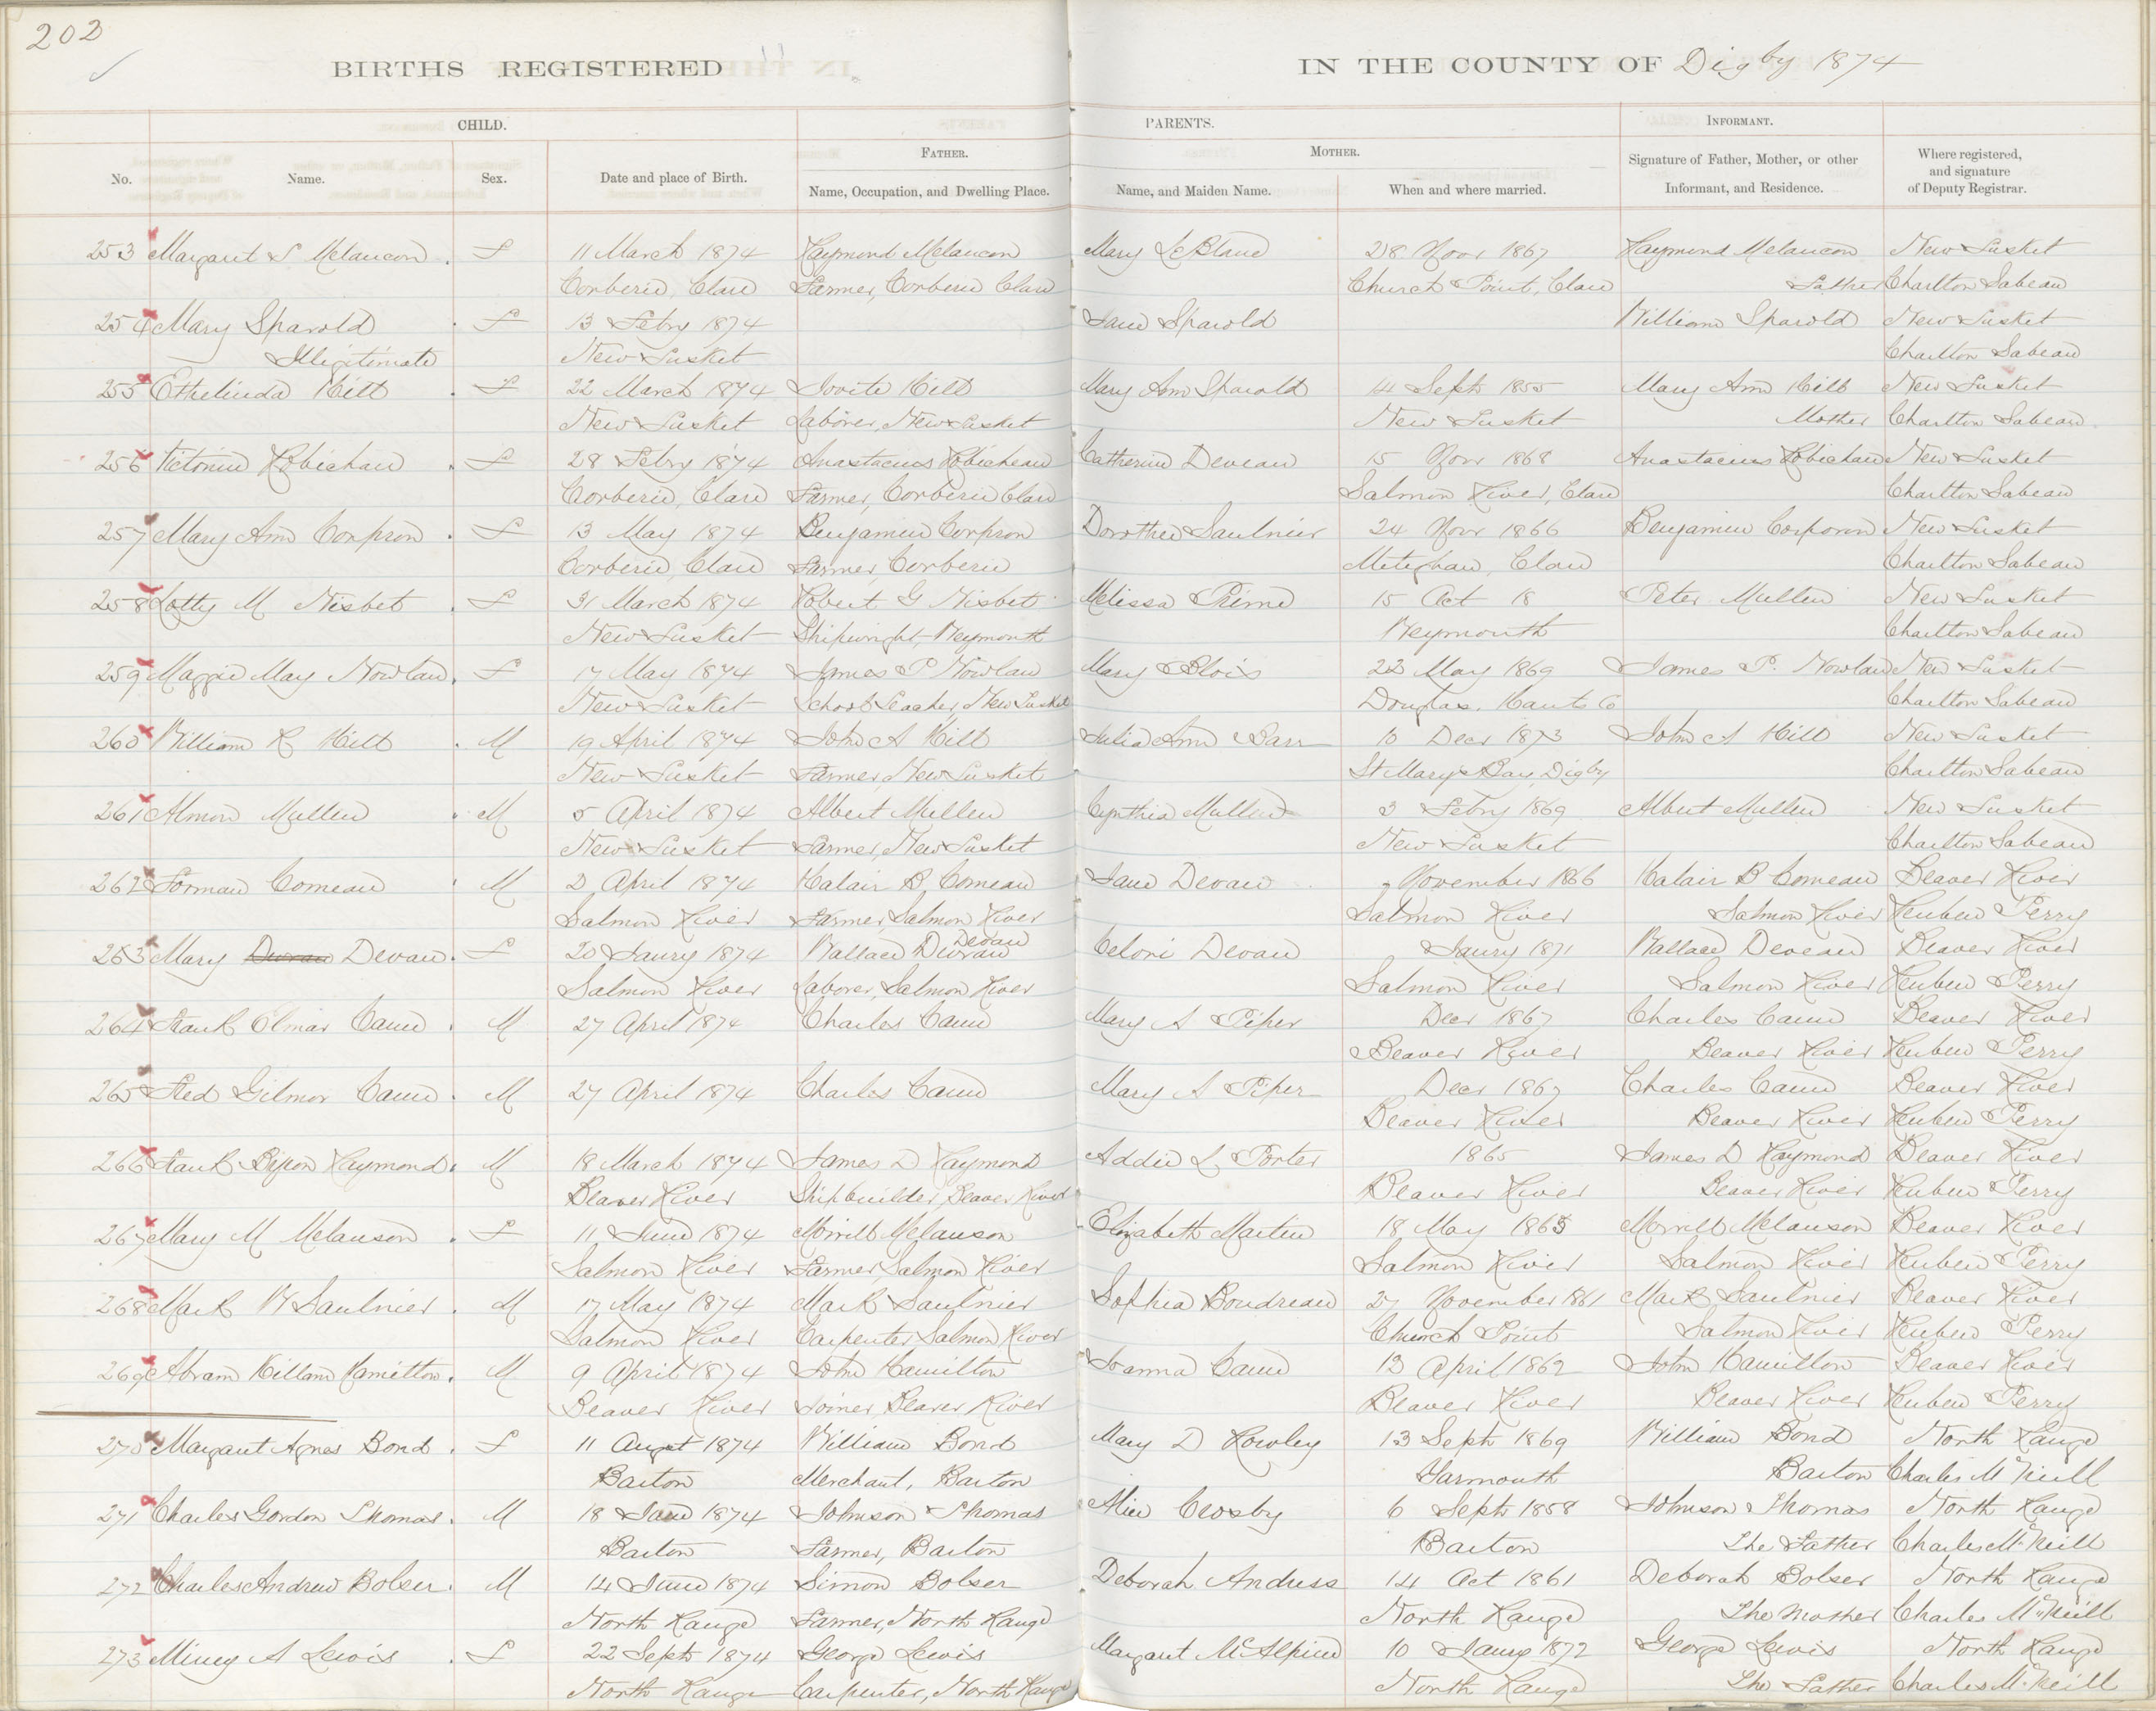 202
BIRTHS REGISTERED IN THE COUNTY OF Digby 1874
CHILD. PARENTS. INFORMANT.
FATHER. MOTHER.
No. Name. Sex. Date and place of Birth. Name, Occupation, and Dwelling Place. Name, and Maiden Name. When and where married. Signature of Father, Mother, or other Informant, and Residence. Where registered, and signature of Deputy Registrar.
253 Margaret S Melancon F 11 March 1874 Raymond Melancon Mary LeBlanc 28 Novr 1867 Raymond Melancon New Tusket
Corberie, Clare Farmer, Corberie Clare Church Point, Clare Father Charlton Sabean
254 Mary Sparold F 13 Febry 1874 Jane Sparold William Sparold New Tusket
Illigitimate New Tusket Charlton Sabean
255 Ethelinda Hill F 22 March 1874 Hill Mary Ann Sparold 14 Sept 1855 Mary Ann Hill New Tusket
New Tusket Laborer, New Tusket New Tusket Mother Charlton Sabean
256 Robichau F 28 Febry 1874 Anastacius Robicheau Catherine Deveau 15 Novr 1868 Anastacius Robichau New Tusket
Corberie, Clare Farmer, Corberie Clare Salmon River, Clare Charlton Sabean
257 Mary Ann Corpron F 13 May 1874 Benjamin Corpron Dorothee Saulnier 24 Novr 1866 Benjamin Corporon New Tusket
Corberie, Clare Farmer, Corberie Meteghan, Clare Charlton Sabean
258 Lotty M Nisbet F 31 March 1874 Robert G Nisbet Melissa Prime 15 Oct 18 Peter Mullen New Tusket
New Tusket Shipwright, Weymouth Weymouth Charlton Sabean
259 Maggie May Nowlan F 17 May 1874 James P Nowlan Mary Blois 22 May 1869 James P. Nowlan New Tusket
New Tusket School Teacher, New Tusket Douglas, Hants Co Charlton Sabean
260 William R Hill M 19 April 1874 John A Hill Julia Ann Barr 10 Decr 1873 John A Hill New Tusket
New Tusket Farmer, New Tusket St Mary's Bay, Digby Charlton Sabean
261 Almon Mullen M 5 April 1874 Albert Mullen Cynthia Mullen 3 Febry 1869 Albert Mullen New Tusket
New Tusket Farmer, New Tusket New Tusket Charlton Sabean
262 Forman Comeau M 2 April 1874 Halair B Comeau Jane Devau 7 November 1866 Halair B Comeau Beaver River
Salmon River Farmer, Salmon River Salmon River Salmon River Reuben Perry
263 Mary Devau F 20 Janry 1874 Wallace Devau Celoni Devau Janry 1871 Wallace Deveau Beaver River
Salmon River Laborer, Salmon River Salmon River Salmon River Reuben Perry
264 Frank Elmar Cann M 27 April 1874 Charles Cann Mary A Piper Decr 1867 Charles Cann Beaver River
Beaver River Beaver River Reuben Perry
265 Fred Gilmor Cann M 27 April 1874 Charles Cann Mary A Piper Decr 1867 Charles Cann Beaver River
Beaver River Beaver River Reuben Perry
266 Frank Byron Raymond M 18 March 1874 James D Raymond Addie L Porter 1865 James D Raymond Beaver River
Beaver River Shipbuilder, Beaver River Beaver River Beaver River Reuben Perry
267 Mary M Melanson F 11 June 1874 Morrill Melanson Elizabeth Martin 18 May 1865 Morrill Melanson Beaver River
Salmon River Farmer, Salmon River Salmon River Salmon River Reuben Perry
268 Mark W Saulnier M 17 May 1874 Mark Saulnier Sophia Boudreau 27 November 1861 Mark Saulnier Beaver River
Salmon River Carpenter, Salmon River Church Point Salmon River Reuben Perry
269 Abram Killam Hamilton M 9 April 1874 John Hamilton Joanna Cann 13 April 1862 John Hamilton Beaver River
Beaver River Joiner, Beaver River Beaver River Beaver River Reuben Perry
270 Margaret Agnes Bond F 11 Augst 1874 William Bond Mary D Rowley 13 Sept 1869 William Bond North Range
Barton Merchant, Barton Yarmouth Barton Charles McNeill
271 Charles Gordon Thomas M 18 June 1874 Johnson Thomas Alice Crosby 6 Sept 1858 Johnson Thomas North Range
Barton Farmer, Barton Barton The Father Charles McNeill
272 Charles Andrew Bolser M 14 June 1874 Simon Bolser Deborah Andress 14 Oct 1861 Deborah Bolser North Range
North Range Farmer, North Range North Range The Mother Charles McNeill
273 Miney A Lewis F 22 Sept 1874 George Lewis Margaret McAlpine 10 Janry 1872 George Lewis North Range
North Range Carpenter, North Range North Range The Father Charles McNeill